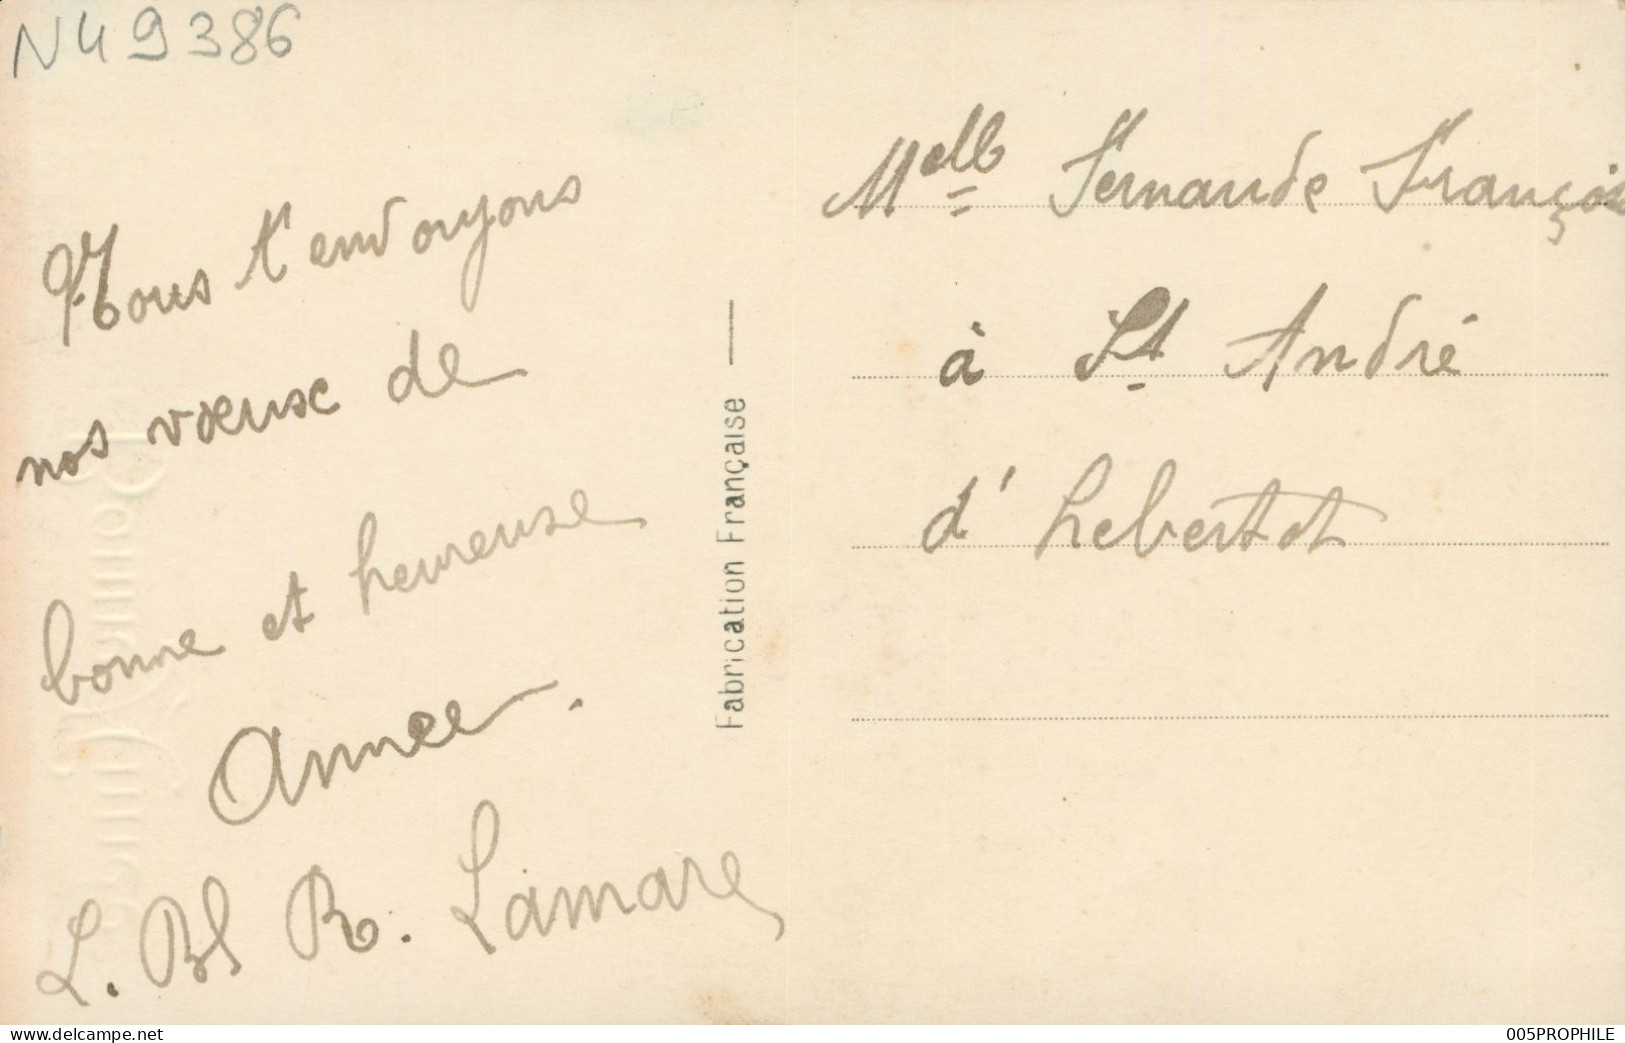 N49386
Nous t'envoyons
nos vœux de
bonne et heureuse
Année.
L. Bl R. Lamare
Fabrication Française
Melle Fernande François
à St André
d'hebertot
www.delcampe.net
005PROPHILE